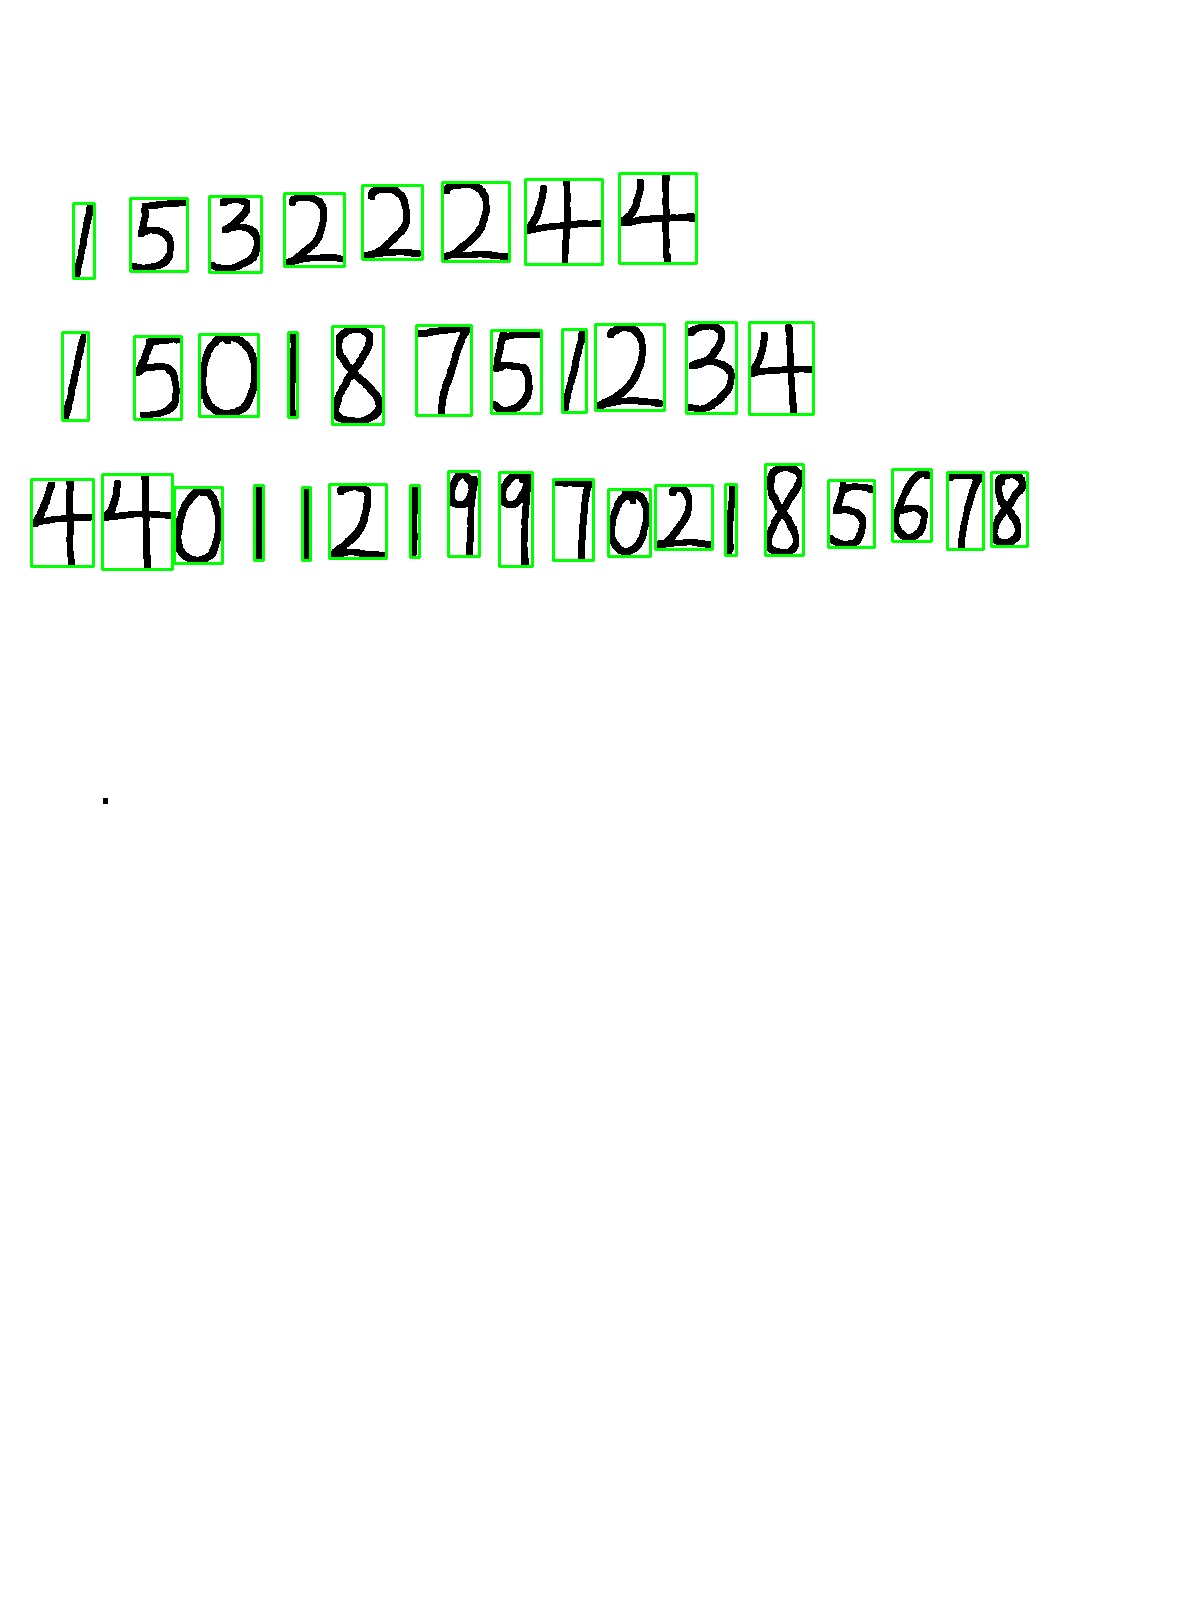 15322244
15018751234
440112199702185678
.